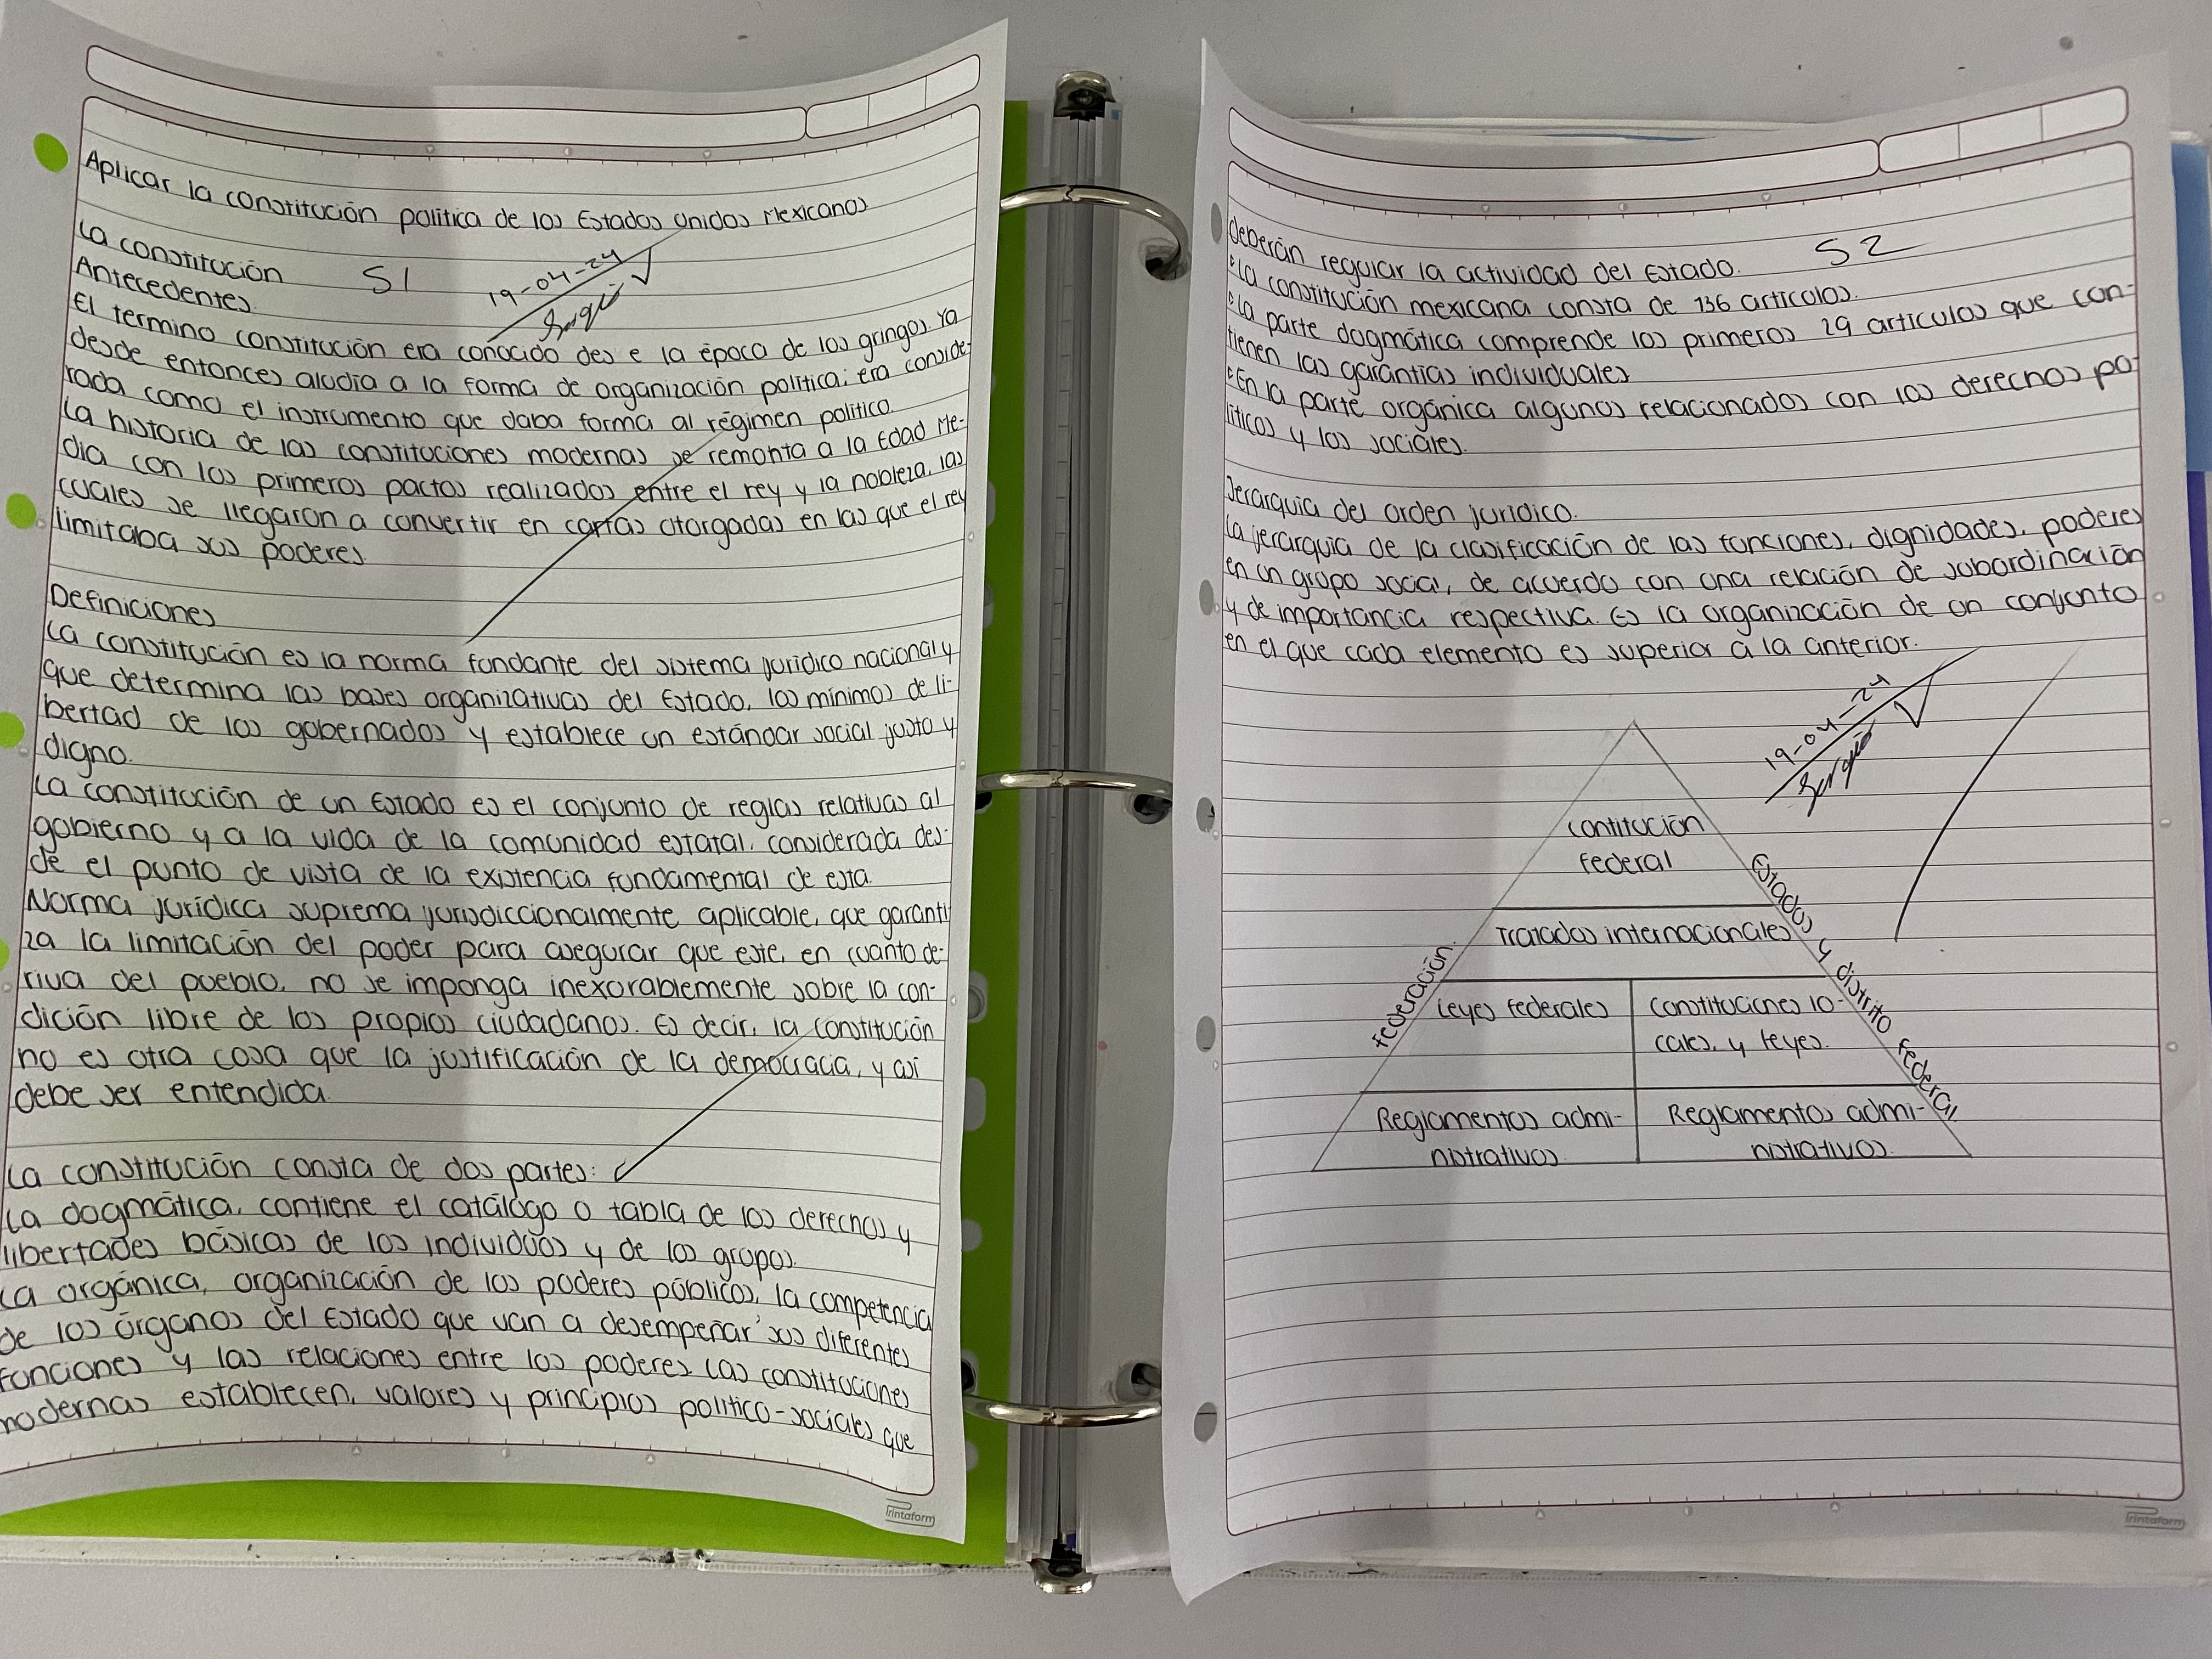 Aplicar la constitución política de los Estados Unidos Mexicanos
La constitución S1
19-04-24
Sergio
Antecedentes.
El termino constitución era conocido des e la época de los gringos. Ya
desde entonces aludia a la forma de organización política; era conside-
rada como el instrumento que daba forma al régimen político.
La historia de las constituciones modernas se remonta a la Edad Me-
dia con los primeros pactos realizados entre el rey y la nobleza, las
cuales se llegaron a convertir en cartas otorgadas en las que el rey
limitaba sus poderes.
Definiciones
La constitución es la norma fundante del sistema jurídico nacional y
que determina las bases organizativas del Estado, los mínimos de li-
bertad de los gobernados y establece un estándar social justo y
digno.
La constitución de un Estado es el conjunto de reglas relativas al
gobierno y a la vida de la comunidad estatal, considerada des-
de el punto de vista de la existencia fundamental de esta.
Norma jurídica suprema jurisdiccionalmente aplicable, que garanti
za la limitación del poder para asegurar que este, en cuanto de-
riva del pueblo, no se imponga inexorablemente sobre la con-
dición libre de los propios ciudadanos. Es decir, la constitución
no es otra cosa que la justificación de la democracia, y asi
debe ser entendida.
La constitución consta de dos partes:
La dogmática, contiene el catálogo o tabla de los derechos y
libertades básicas de los individuos y de los grupos.
La orgánica, organización de los poderes públicos, la competencia
de los órganos del Estado que van a desempeñar sus diferentes
funciones y las relaciones entre los poderes. Las constituciones
modernas establecen, valores y principios político-sociales que
Printaform
deberán regular la actividad del Estado. S2
°La constitución mexicana consta de 136 artículos.
°La parte dogmática comprende los primeros 29 articulos que con-
tienen las garantías individuales
°En la parte orgánica algunos relacionados con los derechos po-
liticos y los sociales.
Jerarquia del orden jurídico.
La jerarquia de la clasificación de las funciones, dignidades, poderes
en un grupo social, de acuerdo con una relación de subordinación
y de importancia respectiva. Es la organización de un conjunto
en el que cada elemento es superior a la anterior.
19-04-24
Sergio
Contitución
federal
Tratados internacionales
Federación.
Estados y distrito federal
Leyes federales
Constituciones lo-
cales, y leyes.
Reglamentos admi-
nistrativos.
Reglamentos admi-
nistrativos.
Printaform